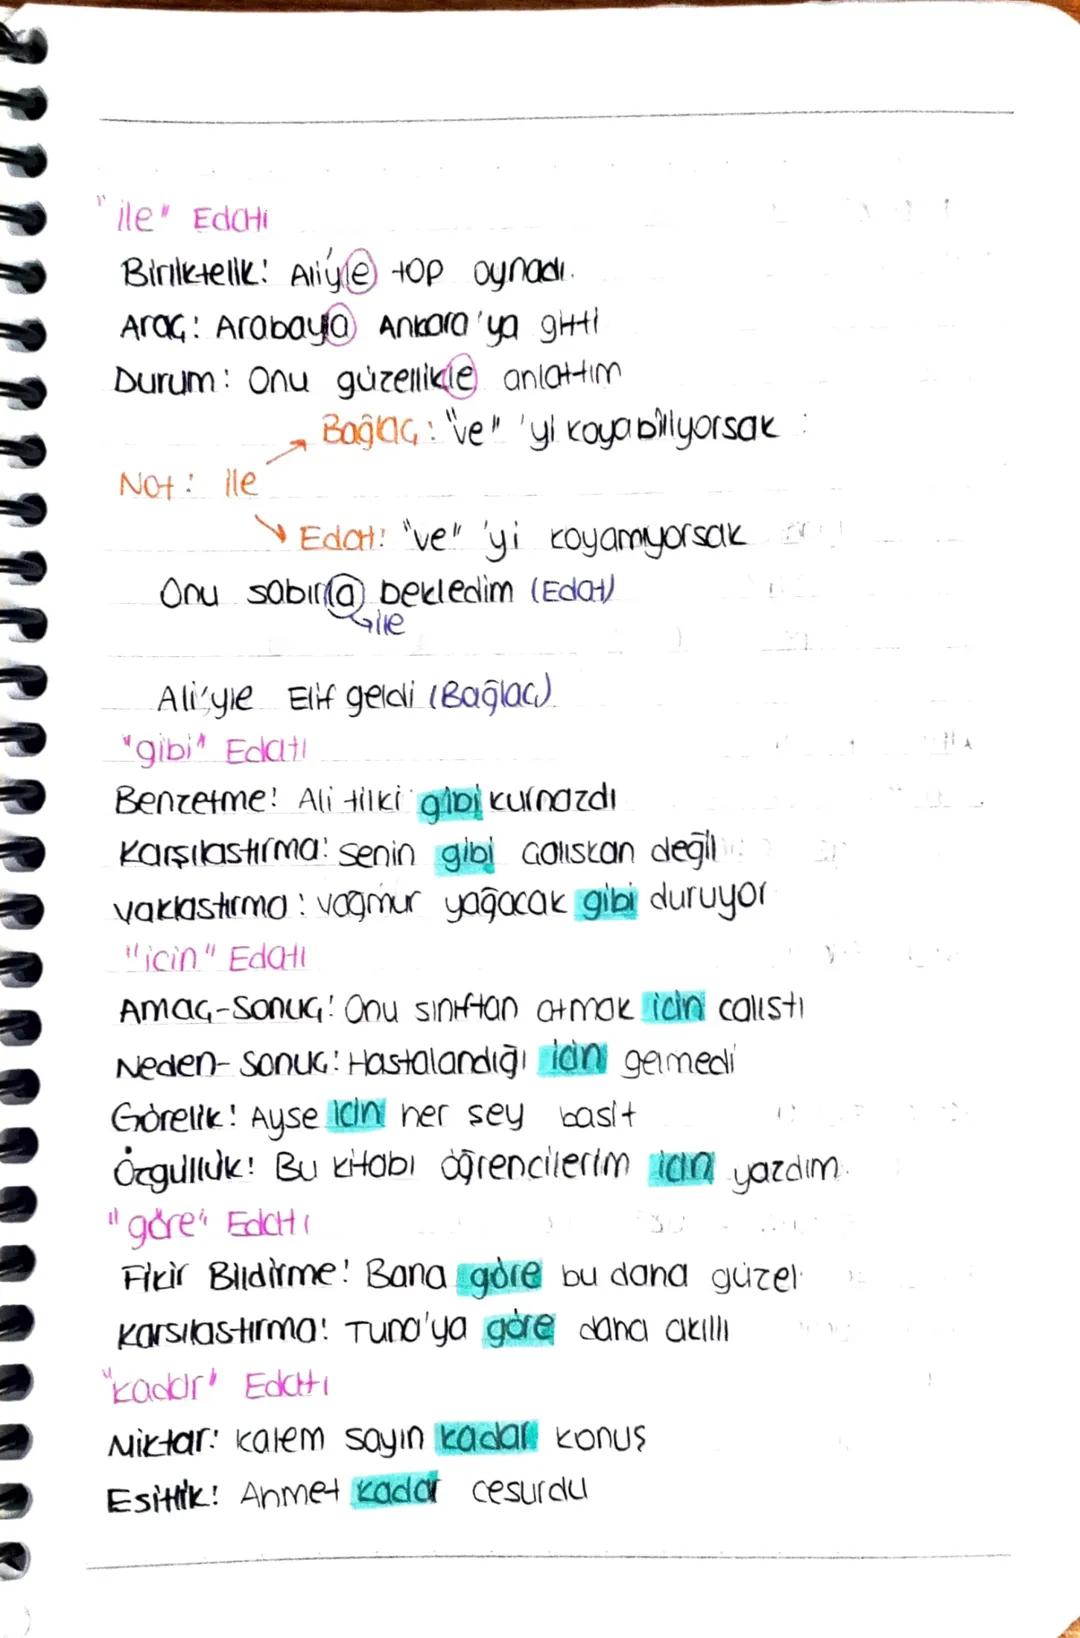 "ile" Edatı
Birliktelik: Ali'yle top oynadı.
Araç: Arabayla Ankara'ya gitti
Durum: Onu güzellikle anlattım
Bağlaç: "ve" 'yi koyabiliyorsak
Not: ile
Edat: "ve" 'yi koyamıyorsak
Onu sabırla bekledim (Edat)
ile
Ali'yle Elif geldi (Bağlaç)
"gibi" Edatı
Benzetme: Ali tilki gibi kurnazdı
Karşılastırma: senin gibi çalıskan değil
Yaklastırma: Yağmur yağacak gibi duruyor
"icin" Edatı
Amaç-Sonuç: Onu sınıftan atmak icin calıstı
Neden-Sonuç: Hastalandığı icin gelmedi
Görelik: Ayse icin her sey basit
Özgüllük: Bu kitabı öğrencilerim icin yazdım.
"göre" Edatı
Fikir Bildirme: Bana göre bu daha güzel
Karsılastırma: Tuna'ya göre daha akıllı
"kadar" Edatı
Miktar: kalem sayın kadar konuş
Esitlik: Ahmet kadar cesurdu